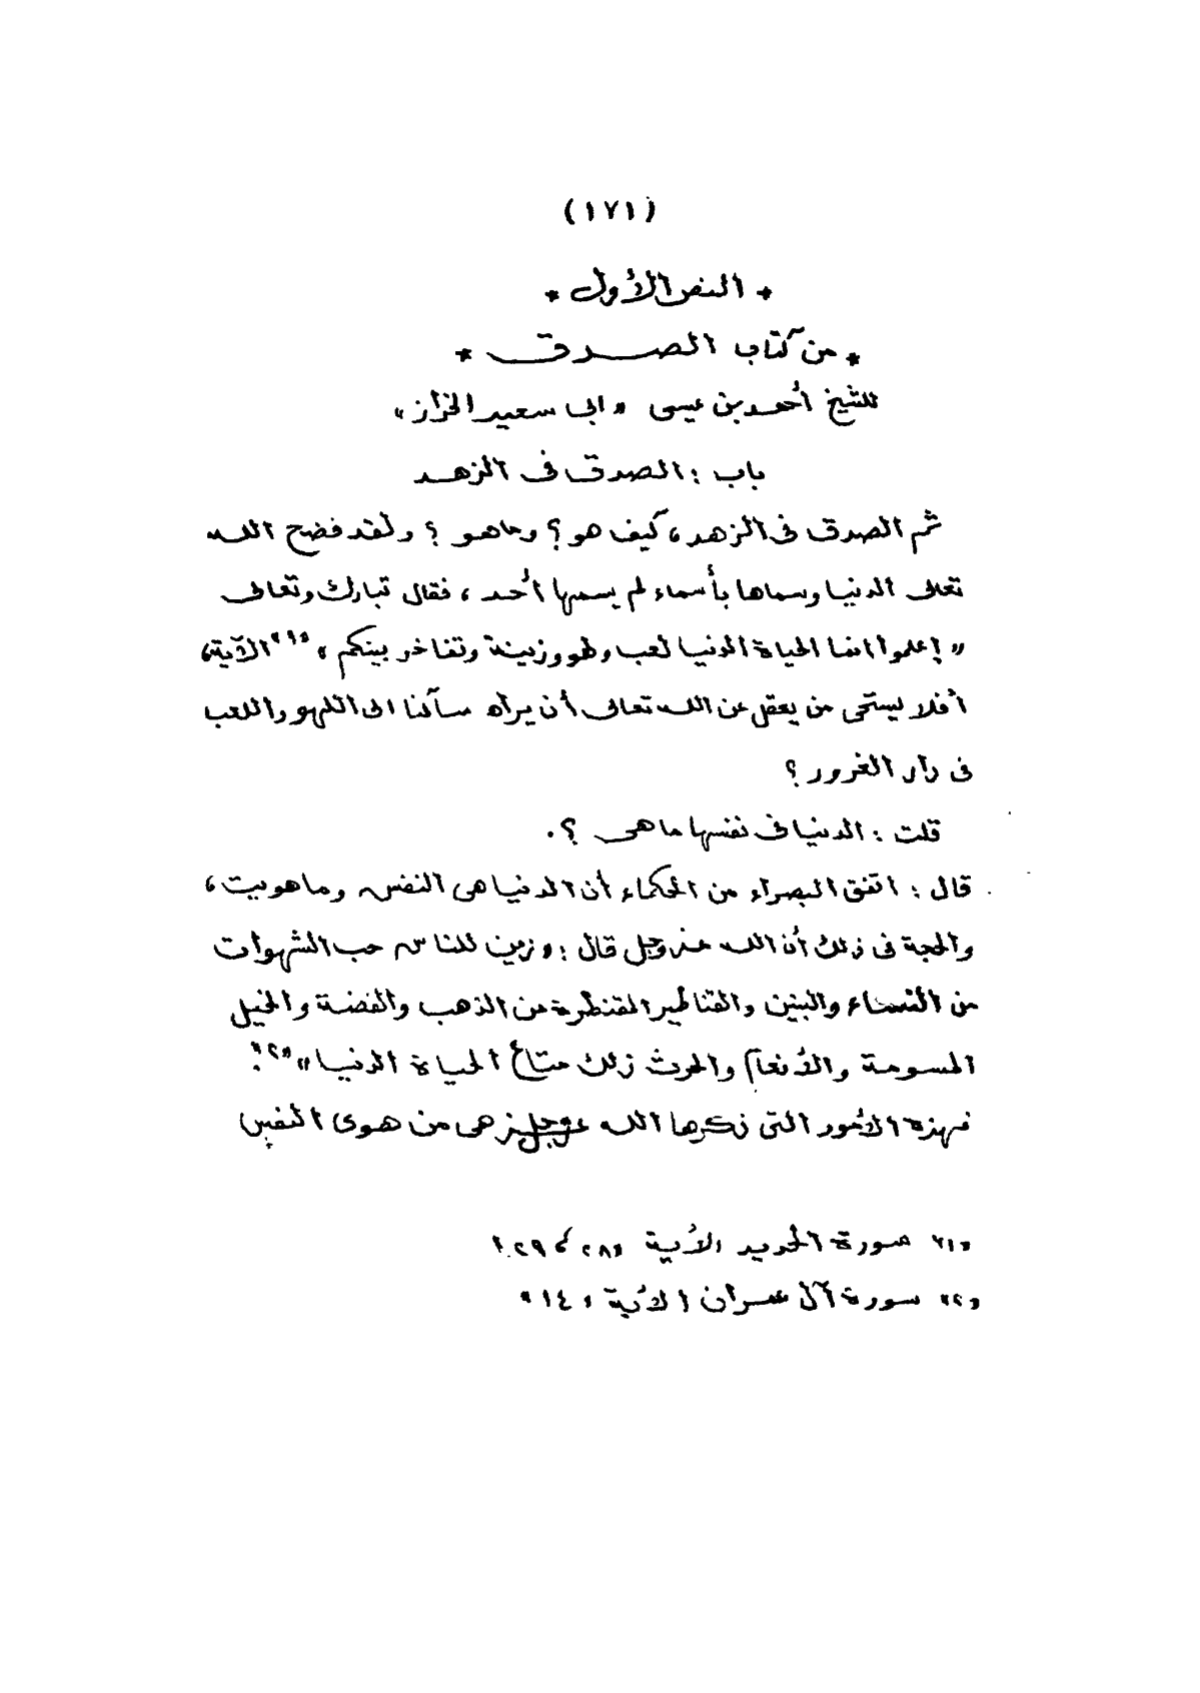 (١٧١)
* النص الأول *
* من كتاب الصدق *
للشيخ أحمد بن عيسى « ابى سعيد الخراز »
باب : الصدق فى الزهد
ثم الصدق فى الزهد ، كيف هو ؟ وماهو ؟ ولقد فضح الله
تعالى الدنيا وسماها بأسماء لم يسمها أحد ، فقال تبارك وتعالى
« إعلموا انما الحياة الدنيا لعب ولهو وزينة وتفاخر بينكم » «١» الآية،
أفلا يستحى من يعقل عن الله تعالى أن يراه ساكنا الى اللهو واللعب
فى دار الغرور ؟
قلت : الدنيا فى نفسها ما هى ؟.
قال : اتفق البصراء من الحكماء أن الدنيا هى النفس وما هويت ،
والحجة فى ذلك أن الله عز وجل قال : « زين للناس حب الشهوات
من النساء والبنين والقناطير المقنطرة من الذهب والفضة والخيل
المسومة والأنعام والحرث ذلك متاع الحياة الدنيا » «٢».
فهذه الأمور التى ذكرها الله عز وجل هى من هوى النفس
«١» سورة الحديد الأية «٢٨ ، ٢٩»
«٢» سورة آل عمران الأية «١٤»